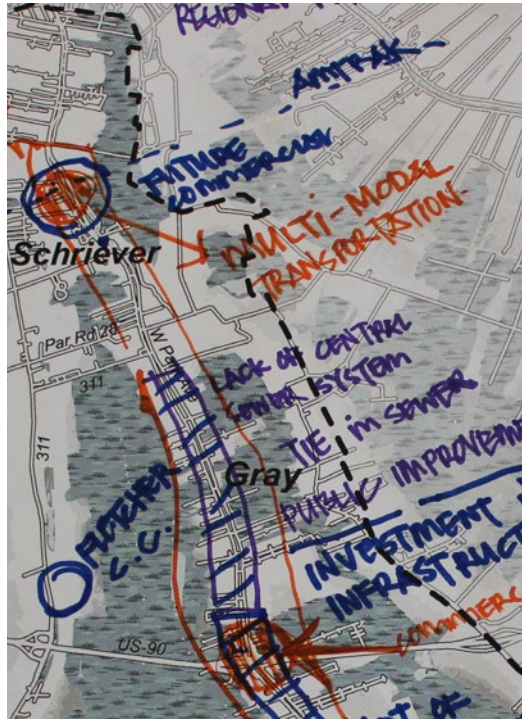 REGION
AMTRAK
FUTURE
COMMERCIAL
MULTI-MODAL
TRANSPORTATION
Schriever
Par Rd 28
W Park Ave
311
311
LACK OF CENTRAL
SEWER SYSTEM
TIE in SEWER
PUBLIC IMPROVEME
Gray
FLETCHER
C.C.
INVESTMENT
INFRASTRUCT
US-90
COMMERC
OF